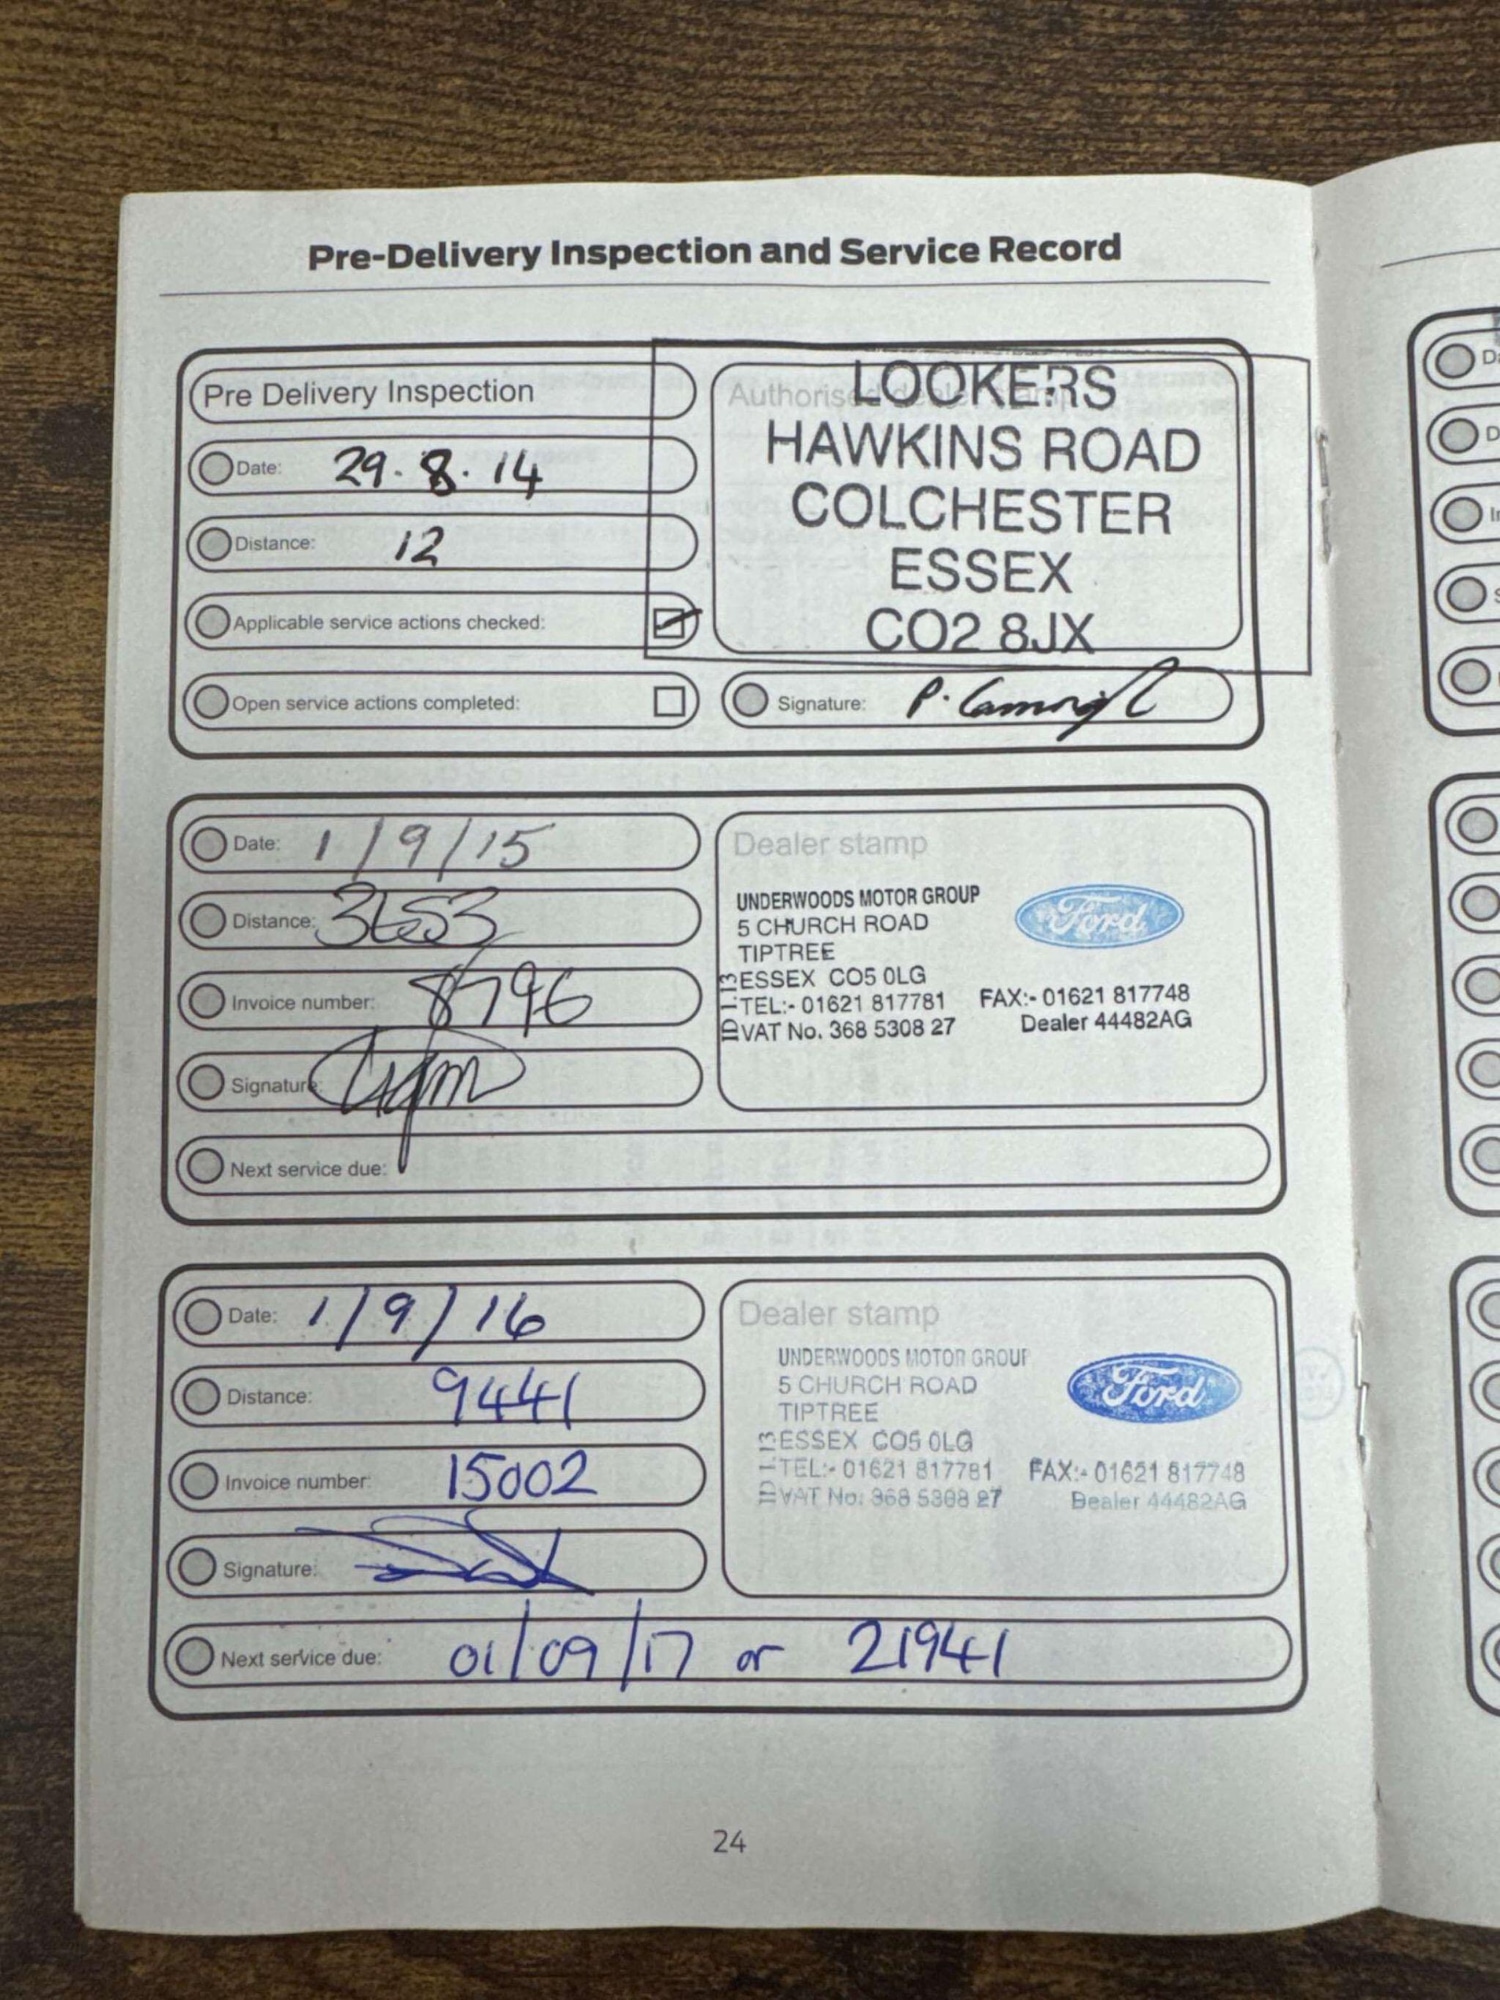 Pre-Delivery Inspection and Service Record
Pre Delivery Inspection
Date: 29.8.14
Distance: 12
Applicable service actions checked:
Open service actions completed:
Authorised dealer stamp
LOOKERS
HAWKINS ROAD
COLCHESTER
ESSEX
CO2 8JX
Signature: P.
Date: 1/9/15
Distance: 3653
Invoice number: 8796
Signature:
Next service due:
Dealer stamp
UNDERWOODS MOTOR GROUP
5 CHURCH ROAD
TIPTREE
ESSEX CO5 0LG
TEL:- 01621 817781 FAX:- 01621 817748
VAT No. 368 5308 27 Dealer 44482AG
ID 1.13
Ford
Date: 1/9/16
Distance: 9441
Invoice number: 15002
Signature:
Next service due: 01/09/17 or 21941
Dealer stamp
UNDERWOODS MOTOR GROUP
5 CHURCH ROAD
TIPTREE
ESSEX CO5 0LG
TEL:- 01621 817781 FAX:- 01621 817748
VAT No. 368 5308 27 Dealer 44482AG
ID 1.13
Ford
24